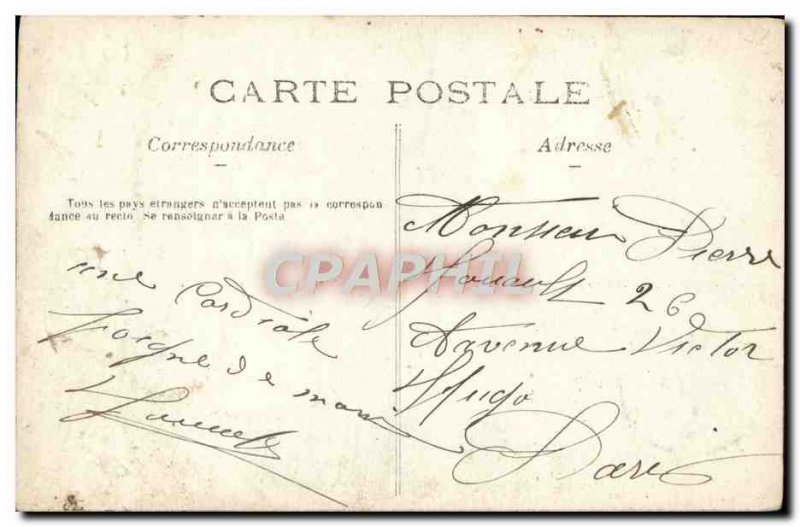 CARTE POSTALE
Correspondance
Adresse
Tous les pays étrangers n'acceptent pas la correspon
dance au recto Se renseigner à la Poste
une Cordiale
Poigne de main
Monsieur Pierre
26
Avenue Victor
Hugo
Paris
CPAPHIL